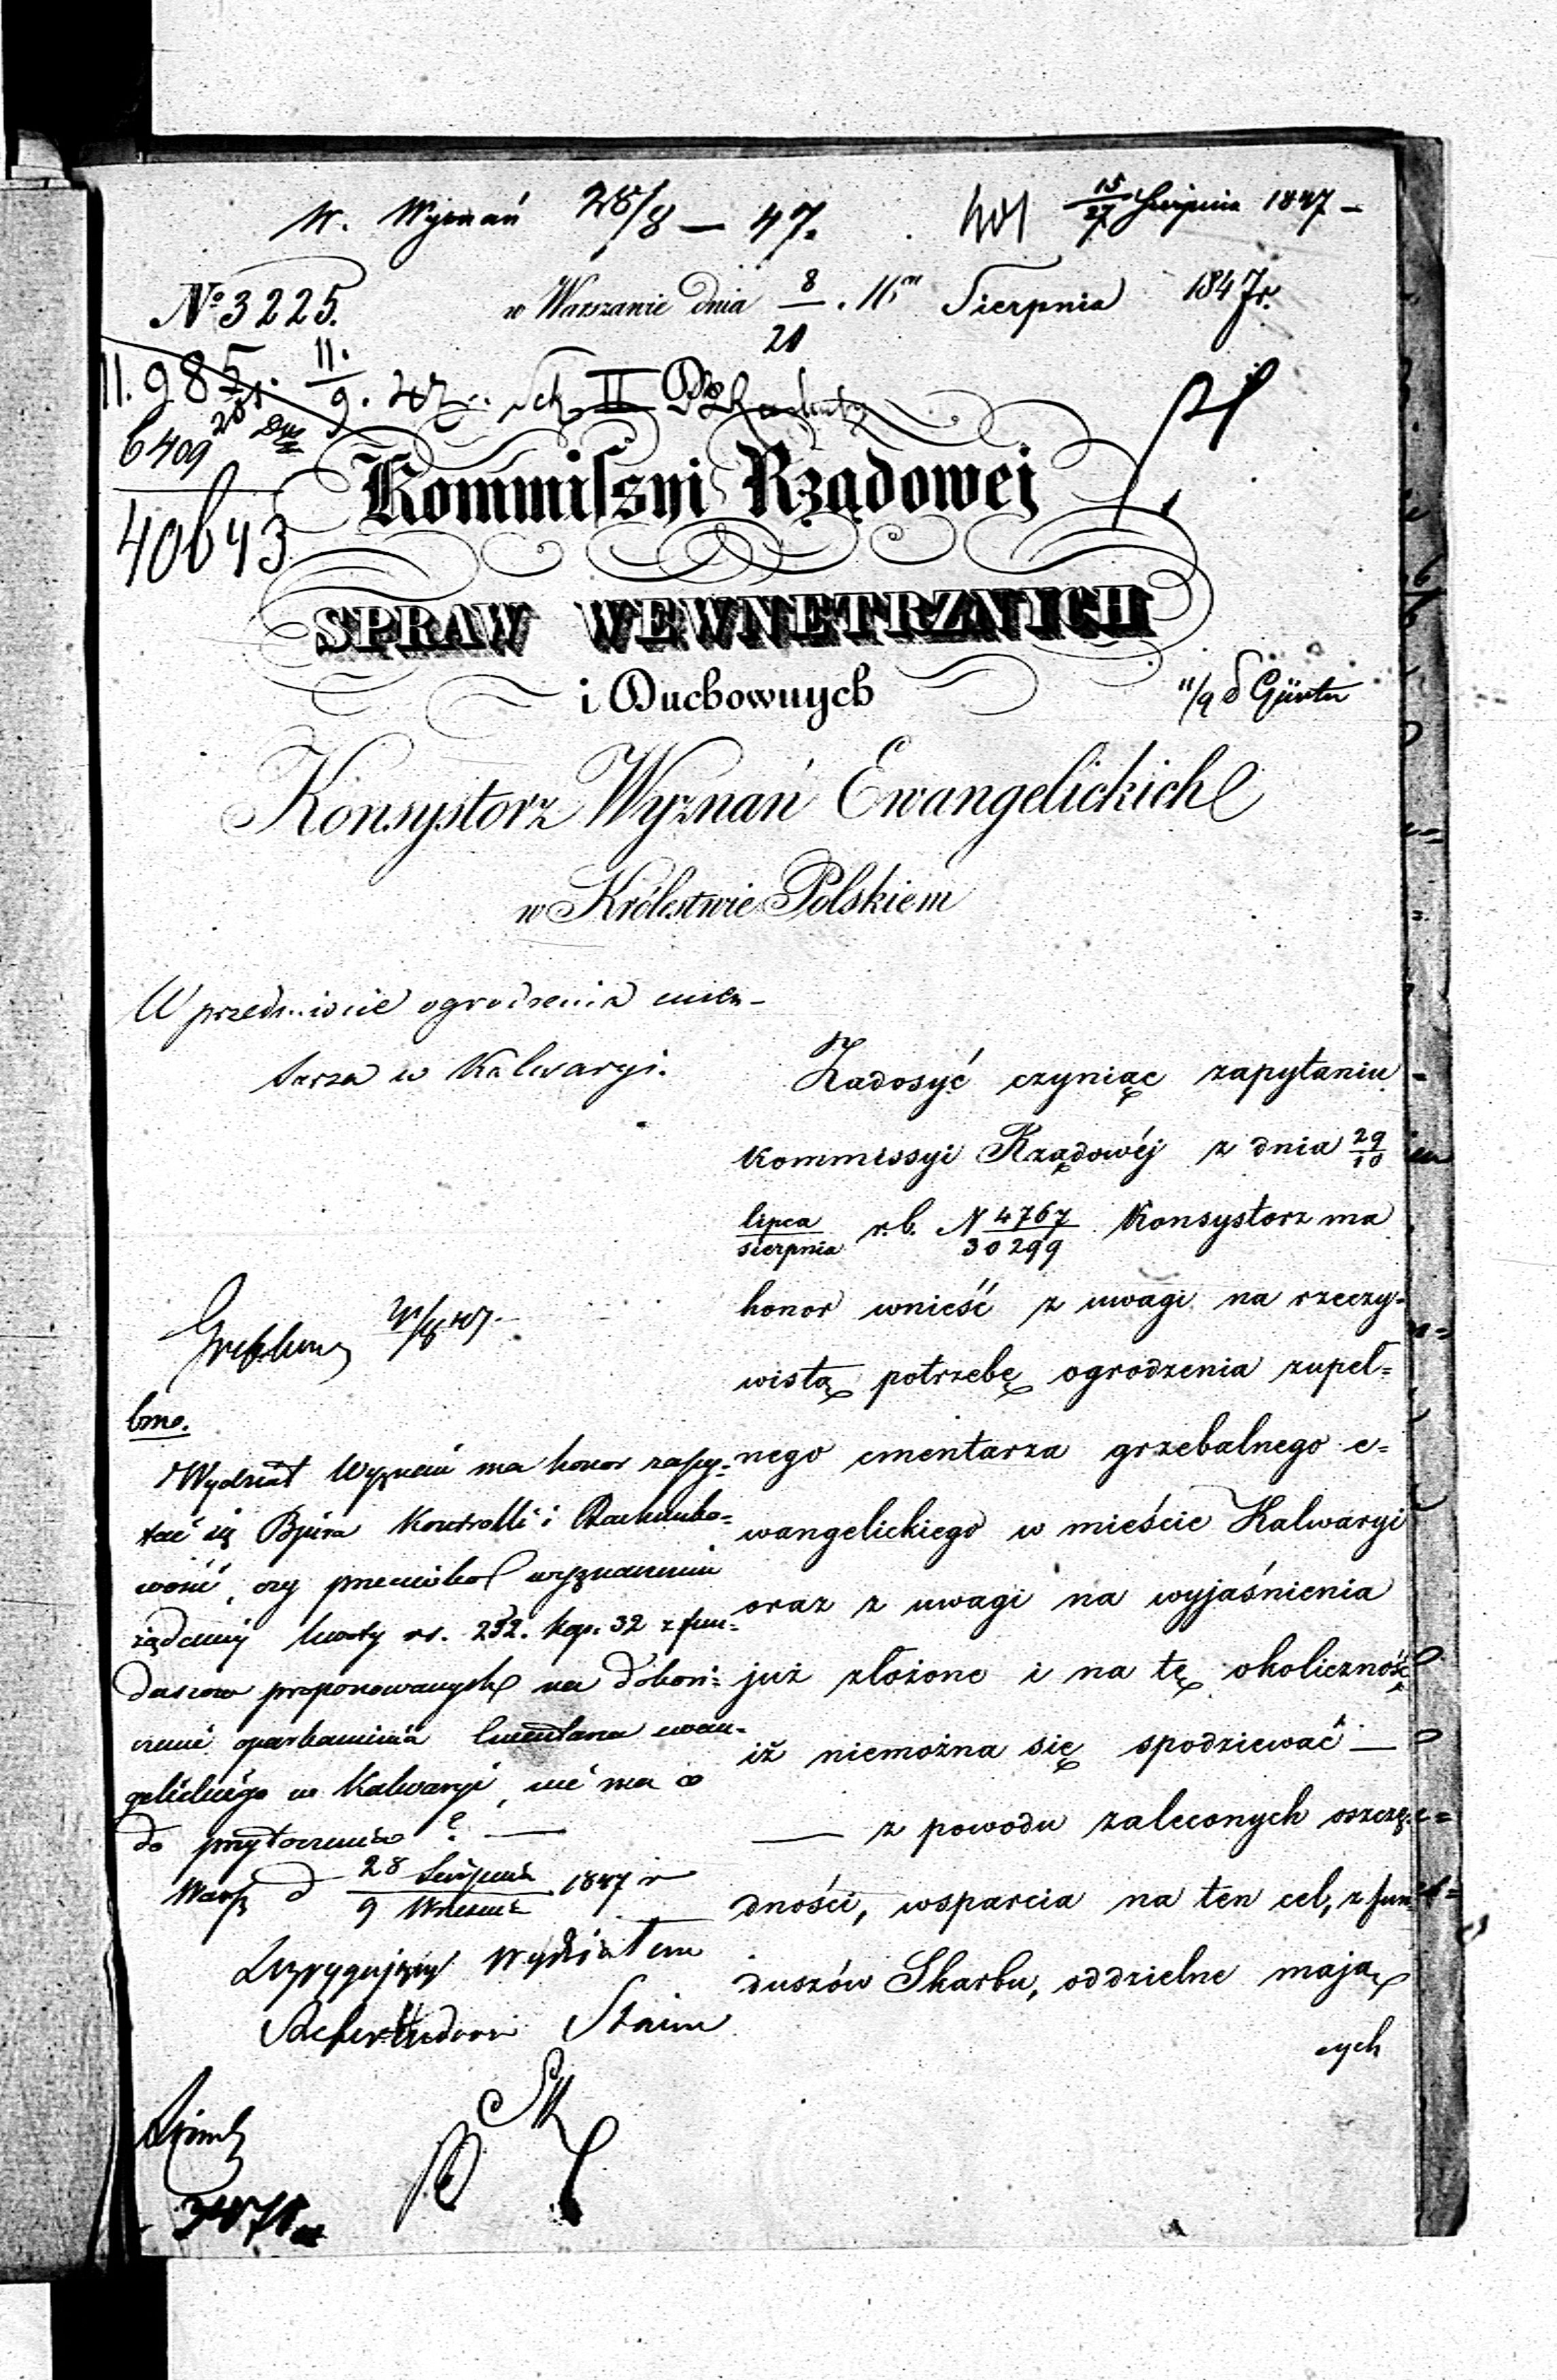 W. Wyznań 28/8 — 47.
15/27 Sierpnia 1847 —
№ 3225.
w Warszawie dnia 8/20 Sierpnia 1847 r.
11.985. 11/9. 47 r. Sek II
6409
40643
Kommissyi Rządowej
SPRAW WEWNETRZNYCH
i Duchownych
11/9 d Günter
Konsystorz Wyznań Ewangelickich
w Królestwie Polskiem
W przedmiocie ogrodzenia cmen-
tarza w Kalwaryi.
Zadosyć czyniąc zapytaniu
Kommissyi Rządowéj z dnia 29/10
lipca/sierpnia r. b. N 4767/30299 Konsystorz ma
honor wnieść z uwagi na rzeczy-
wistą potrzebę ogrodzenia zupeł=
nego cmentarza grzebalnego e=
wangelickiego w mieście Kalwaryi
oraz z uwagi na wyjaśnienia
już złożone i na tę okoliczność
iż niemożna się spodziewać —
— z powodu zaleconych oszczę=
dności, wsparcia na ten cel, z fun=
duszów Skarbu, oddzielne mają
cych
Wydział Wyznań ma honor zapy=
tać się Bjóra Kontrolli i Rachunko=
wości, czy przeciwko wyznaczeniu
żądanej kwoty rs. 232. kop. 32 z fun=
duszów proponowanych na dokoń=
czenie oparkanienia Cmentarza ewan=
gelickiego w Kalwaryi, nie ma co
do przytoczenia? —
Warsz d 28 Sierpnia/9 Września 1847 r
Dyrygujący Wydziałem